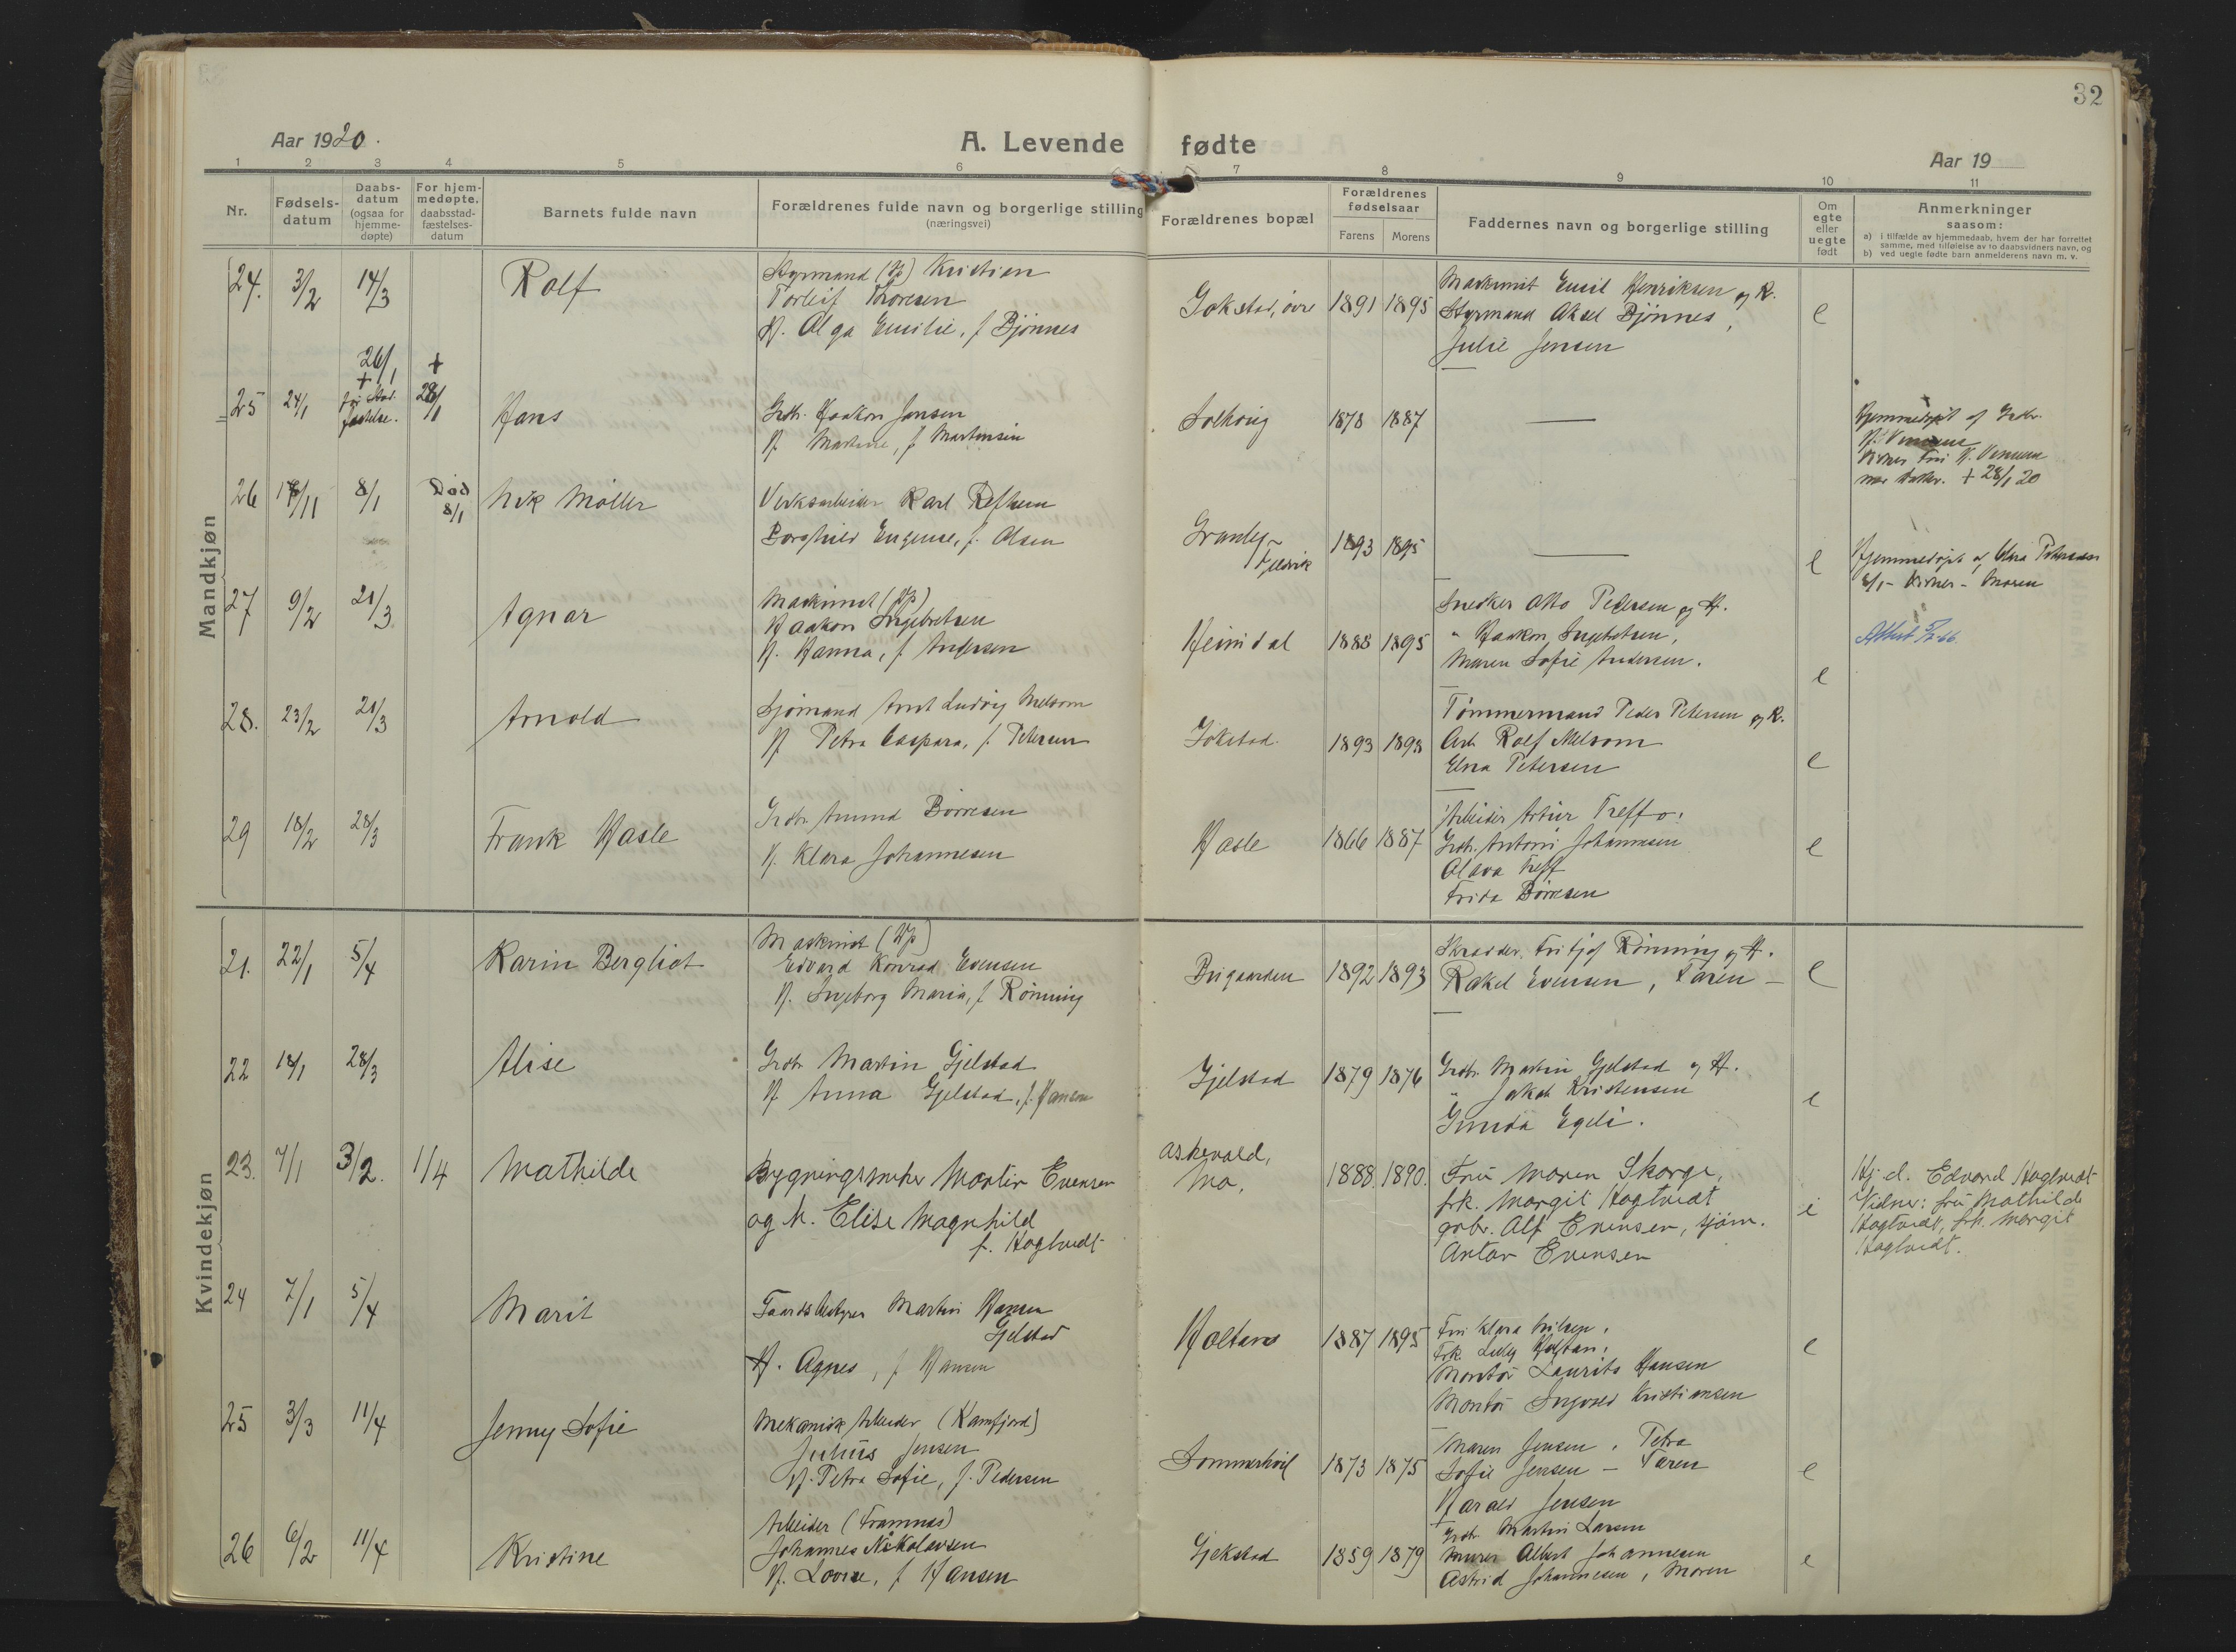 32
Aar 1920.
A. Levende fødte
Aar 19
1 2 3 4 5 6 7 8 9 10 11
Nr.
Fødsels-
datum
Daabs-
datum
(ogsaa for
hjemme-
døpte)
For hjem-
medøpte.
daabsstad-
fæstelses-
datum
Barnets fulde navn
Forældrenes fulde navn og borgerlige stilling
(næringsvei)
Forældrenes bopæl
Forældrenes
fødselsaar
Farens Morens
Faddernes navn og borgerlige stilling
Om
egte
eller
uegte
født
Anmerkninger
saasom:
a) i tilfælde av hjemmedaab, hvem der har forrettet
samme, med tilføielse av to daabsvidners navn, og
b) ved uegte fødte barn anmelderens navn m. v.
Mandkjøn
24. 3/2 14/3
Rolf
Styrmand Kristian
Torleif Thoresen
H. Olga Emilie, f. Bjönnes
Gokstad, övre 1891 1895
Maskinist Emil Henriksen og H.
Styrmand Aksel Bjönnes,
Julie Jensen
e
25 24/1 26/1 + 28/1
Hans
Grdbr. Haakon Jensen
H. Martine, f. Martinsen
Solhaug 1878 1887
Hjemmedøpt af Grdbr.
+ 28/1 20
26 11 8/1 Död 8/1
Møller
Verksarbeider Karl
Borghild Eugenie, f. Olsen
Granly 1893 1895
e
Hjemmedøpt af Elna Petersen
8/1 - Vidner - Moren
27 9/2 21/3
Agnar
Maskinist
Haakon Ingebretsen
H. Hanna, f. Andersen
Heimdal 1888 1895
Snedker Otto Pedersen og H.
" Haakon Ingebretsen,
Maren Sofie Andersen.
e
28. 23/2 21/3
Arnold
Sjömand Arnt Ludvig Melsom
H. Petra Caspara, f. Petersen
Gokstad 1893 1898
Tömmermand Peder Petersen og H.
Arb. Rolf Melsom
Elna Petersen
e
29 18/2 28/3
Frank Hasle
Grdbr. Amund Börresen
H. Klara Johannesen
Hasle 1866 1887
Arbeider Artur Treff
Grdbr. Antoni Johannesen
Olava Treff
Frida Börresen
e
Kvindekjøn
21. 22/1 5/4
Karin Bergliot
Maskinist
Edvard Konrad Evensen
H. Ingeborg Maria, f. Rönning
1892 1893
Skrædder Fritjof Rönning og H.
Rakel Evensen, Faren
e
22 18/1 28/3
Alise
Grdbr Martin Gjelstad
H. Anna Gjelstad, f. Hansen
Gjelstad 1879 1876
Grdbr. Martin Gjelstad og H.
" Jakob Kristensen
Gunda Egeli.
e
23. 7/1 3/2. 1/4
Mathilde
Bygningssnekker Martin Evensen
og H. Elise Magnhild
f. Hagtvedt
Askevold,
Mo, 1888. 1890.
Fru Maren Skorge,
frk. Margit Hagtvedt
grbr. Alf Evensen, sjöm.
Anton Evensen
Hj. d. Edvard Hagtvedt
Vidner: fru Mathilde
Hagtvedt, frk. Margit
Hagtvedt.
24 7/1 5/4
Marit
Gaardsbestyrer Martin Hansen
Gjelstad
H. Agnes, f. Hansen
Holtan 1887 1895
Fru Klara Nilsen,
Frk. Lilly Holtan,
Montör Laurits Hansen
Montör Ingvald Kristiansen
e
25 3/3 11/4
Jenny Sofie
Mekanisk Arbeider (Kamfjord)
Julius Jensen
H. Petra Sofie, f. Pedersen
Sommerhvil 1873 1875
Maren Jensen, Petra
Sofie Jensen - Faren
Harald Jensen
e
26 6/2 11/4
Kristine
Arbeider (Framnæs)
Johannes Nikolaisen
H. Lovise, f. Hansen
Gjekstad 1859 1879
Grdbr. Martin Larsen
Murer Albert Johannesen
Astrid Johannesen, Moren
e